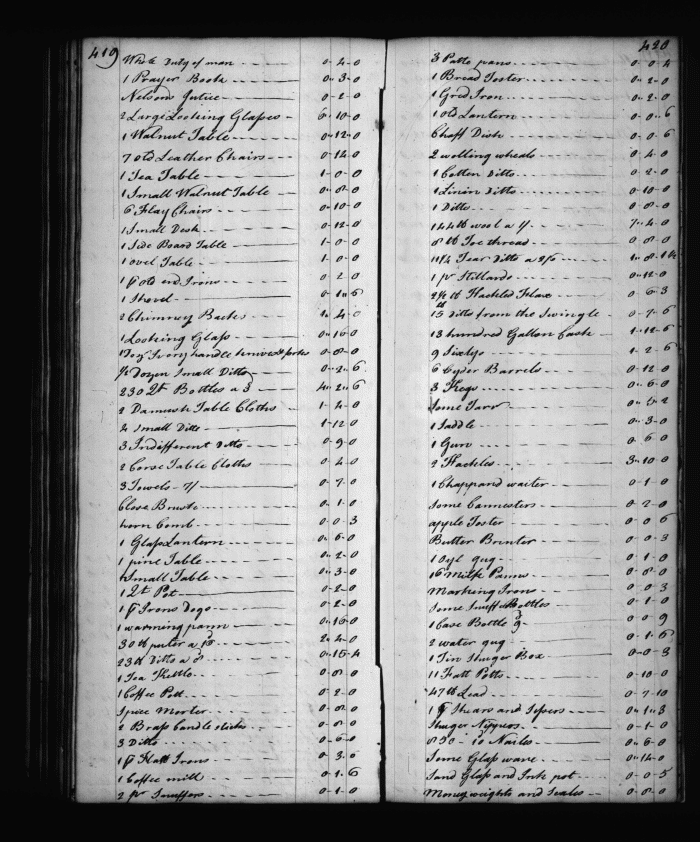 419
Whole Duty of man - - - 0-4-0
1 Prayer Book - 0-3-0
Nelsons Justice 0-2-0
2 Large Looking Glasses - 6-10-0
1 Walnut Table 0-12-0
7 old Leather Chairs - 0-14-0
1 Tea Table 1-0-0
1 Small Walnut Table 0-8-0
6 Flag Chairs 0-10-0
1 Small Desk 0-12-0
1 Side Board Table 1-0-0
1 ovel Table 1-0-0
1 p old end Irons 0 2-0
1 Shovel 0-1-6
2 Chimney Backs 1-4-0
1 Looking Glass 0-16-0
1 Doz Ivory handle knives & forks 0-8-0
½ Dozen Small Ditto 0-2-6
230 Qt Bottles a 3 4-2-6
2 Damusk Table Cloths 1-4-0
4 Small Ditto 1-12-0
3 Indifferent Ditto 0-9-0
2 Corse Table Cloths 0-4-0
3 Towels - 0-7-0
Close Brush 0-1-0
horn Comb 0-0-3
1 Glass Lantern 0-6-0
1 pine Table 0-2-0
1 Small Table 0-3-0
1 2t Pot 0-2-0
1 p Irons Dogs 0-2-0
1 warming pann 0-16-0
30 lb puter a 2-4-0
23 lb Ditto a 8 0-15-4
1 Tea Kettle 0-8-0
1 Coffee Pott 0-2-0
Spice Morter 0-8-0
2 Brass Candlesticks 0-8-0
3 Ditto 0-6-0
1 p Flatt Irons 0-3-0
1 Coffee mill 0-1-6
2 pr Snuffers 0-1-0
420
3 Patte pans 0-0-4
1 Bread Toster 0-2-0
1 Gred Iron 0-2-0
1 old Lantern 0-0-6
Chaff Dish 0-0-6
2 wolling wheals 0-4-0
1 Cotten Ditto 0-2-0
1 Linin Ditto 0-10-0
1 Ditto 0-8-0
144 lb wool a 1/ 7-4-0
8 lb Toe thread 0-8-0
11¼ Tear Ditto a 2/6 1-8-1½
1 pr Stillards 0-12-0
2½ lb Hackled Flax 0-6-3
15 lb Ditto from the Swingle 0-7-6
13 hundred Gallon Cask 1-12-6
9 Sixtys 1-2-6
6 Cyder Barrels 0-12-0
3 Kegs 0-6-0
Some Tarr 0-5-2
1 Saddle 0-3-0
1 Gun 0 6-0
2 Hackles 3-10-0
1 Chapp and waiter 0-1-0
Some Cannesters 0-2-0
apple Toster 0-0-6
Butter Printer 0-0-3
1 Oyl gug 0-1-0
16 Milk Panns 0-8-0
Marking Irons 0-0-3
Some Snuff Bottles 0-1-0
1 Case Bottle 0-0 9
2 water gug 0-1-6
1 Tin Shuger Box 0-0-8
11 Fatt Potts 0-10-0
47 lb Lead 0-7-10
1 p Shears and Sisers 0-1-3
Shuger Nippers 0-1-0
850 - 10 Nailes 0-6-0
Some Glass ware 0-14-0
Sand Glass and Ink pot 0-0-5
Money weights and Scales 0-8-0